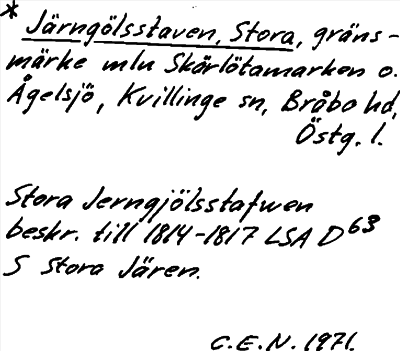 * Järngölsstaven, Stora, gräns-
märke mln Skärlötamarken o.
Ågelsjö, Kvillinge sn, Bråbo hd,
Östg. l.
Stora Jerngjölsstafwen
beskr. till 1814-1817 LSA D63
S Stora Jären.
C.E.N. 1971.